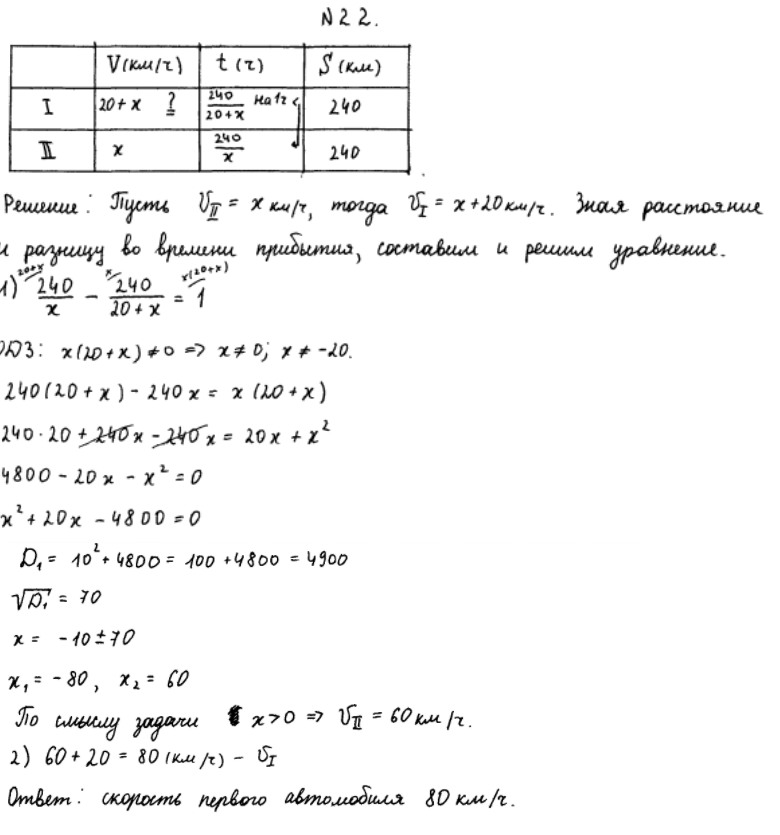 N 22.
V(км/ч) t (ч) S (км)
I 20+x ? 240/(20+x) на 1ч < 240
II x 240/x 240
Решение: Пусть V_II = x км/ч, тогда V_I = x+20 км/ч. Зная расстояние
и разницу во времени прибытия, составим и решим уравнение.
20+x x x(20+x)
1) 240/x - 240/(20+x) = 1
ОДЗ: x(20+x) ≠ 0 => x ≠ 0; x ≠ -20.
240(20+x) - 240x = x(20+x)
240·20 + 240x - 240x = 20x + x²
4800 - 20x - x² = 0
x² + 20x - 4800 = 0
D₁ = 10² + 4800 = 100 + 4800 = 4900
√D₁ = 70
x = -10 ± 70
x₁ = -80, x₂ = 60
По смыслу задачи x>0 => V_II = 60 км/ч.
2) 60 + 20 = 80 (км/ч) - V_I
Ответ: скорость первого автомобиля 80 км/ч.